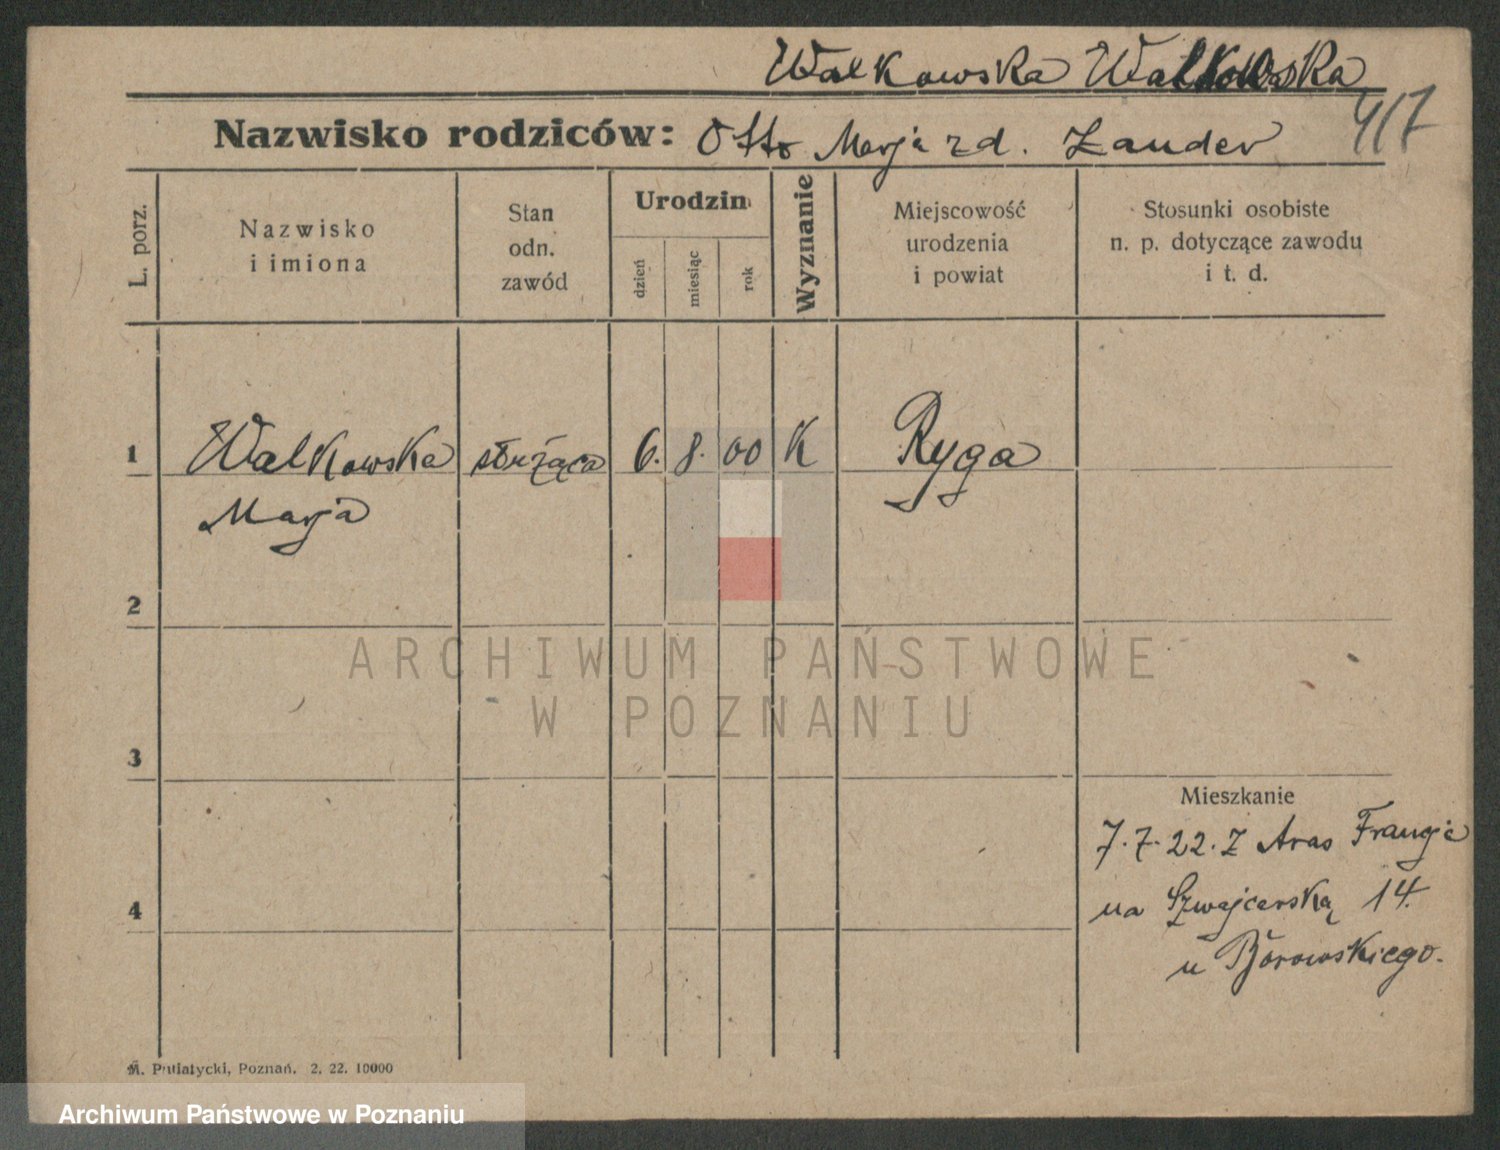 Walkowska Walkowska
4/7
Nazwisko rodziców: Otto Marja zd. Zander
L. porz.
Nazwisko
i imiona
Stan
odn.
zawód
Urodzin
dzień
miesiąc
rok
Wyznanie
Miejscowość
urodzenia
i powiat
Stosunki osobiste
n. p. dotyczące zawodu
i t. d.
1 Walkowska służąca 6. 8. 00 K Ryga
Marja
2
ARCHIWUM PAŃSTWOWE
W POZNANIU
3
Mieszkanie
7.7.22. Z Aras Francja
na Szwajcarską 14.
4
u Borowskiego.
M. Putiatycki, Poznań. 2. 22. 10000
Archiwum Państwowe w Poznaniu